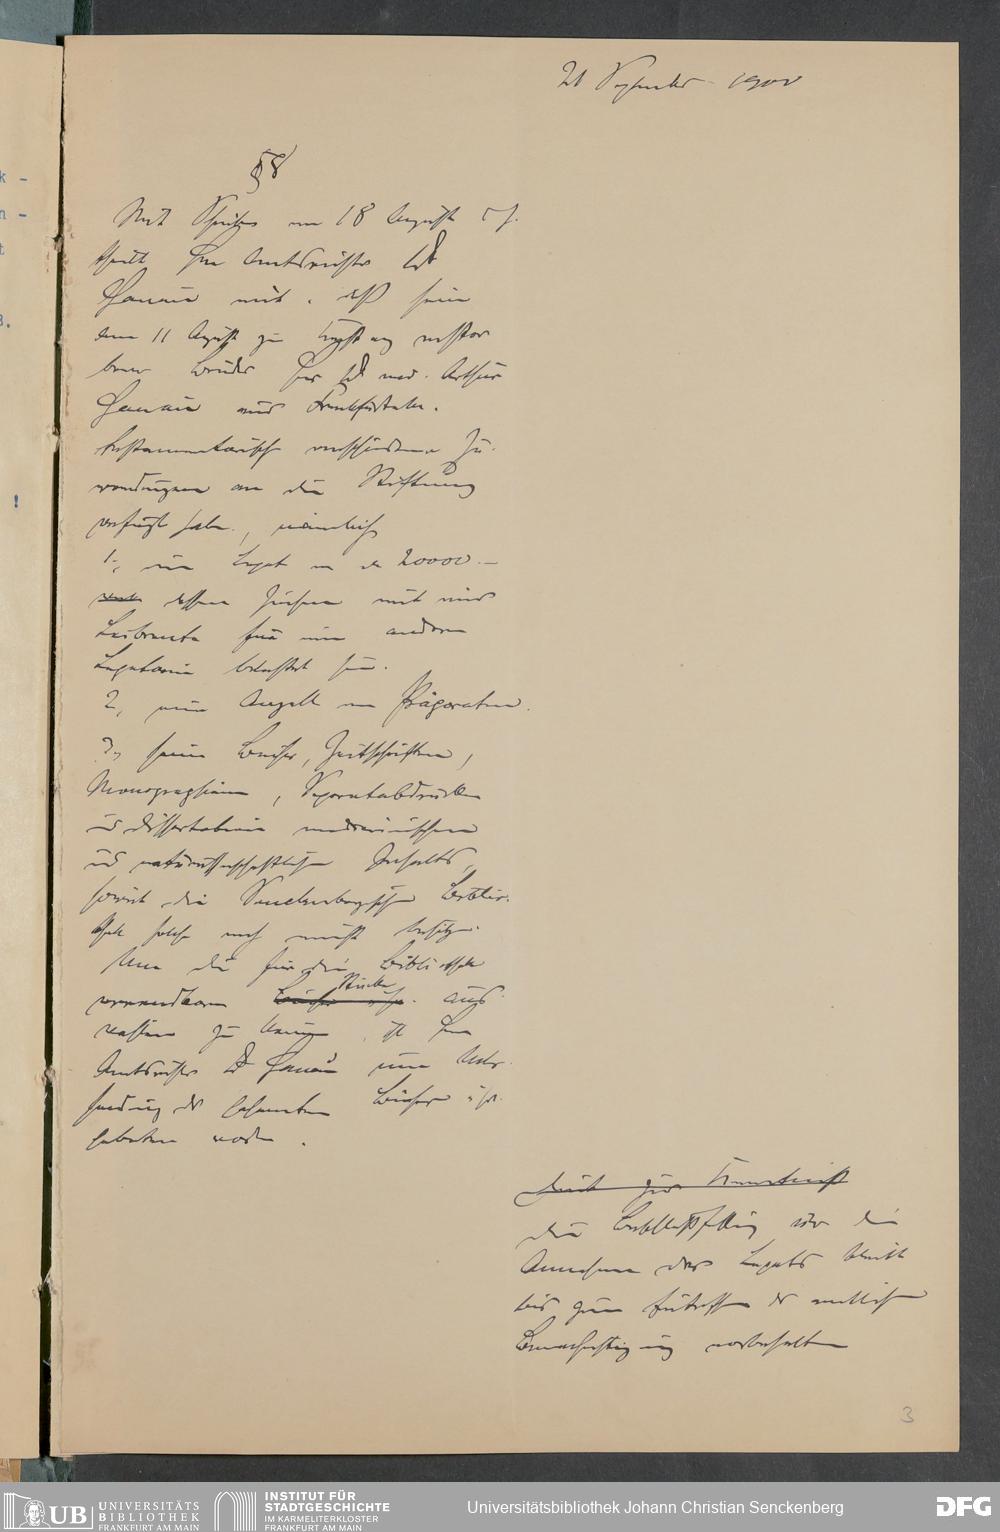 21 September 1900
§8
Mit Schreiben vom 18 August cr.
theilt Herr Amtsrichter Dr
Hanau mit, daß sein
am 11 August zu verstor
bener Bruder Herr Dr med. Arthur
Hanau aus Frankfurt a/M.
testamentarisch verschiedene Zu-
wendungen an die Stiftung
verfügt habe, nämlich
1., ein Legat von M 20000.–
dessen Zinsen mit einer
Leibrente für eine andere
Legatarin belastet sei.
2, eine Anzahl von Präparaten.
3., seine Bücher, Zeitschriften,
Monographieen, Separatabdrücke
u Dissertationen medizinischen
und naturwissenschaftlichen Inhalts,
soweit die Senckenbergische Biblio-
thek solche noch nicht besitze.
Um die für die Bibliothek
verwendbaren Stücke aus-
wählen zu können, ist Herr
Amtsrichter Dr Hanau um Über-
sendung der gesamten Bücher u.s.w.
gebeten worden.
dient zur Kenntniß
die Beschlußfassung über die
Annahme des Legats bleibt
bis zum Eintreffen der amtlichen
Benachrichtigung vorbehalten
3
k -
n -
t
3.
!
UB UNIVERSITÄTS
BIBLIOTHEK
FRANKFURT AM MAIN
INSTITUT FÜR
STADTGESCHICHTE
IM KARMELITERKLOSTER
FRANKFURT AM MAIN
Universitätsbibliothek Johann Christian Senckenberg
DFG